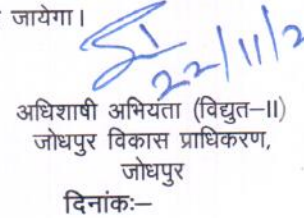 जायेगा।
22/11/2
अधिशाषी अभियंता (विद्युत–II)
जोधपुर विकास प्राधिकरण,
जोधपुर
दिनांकः–